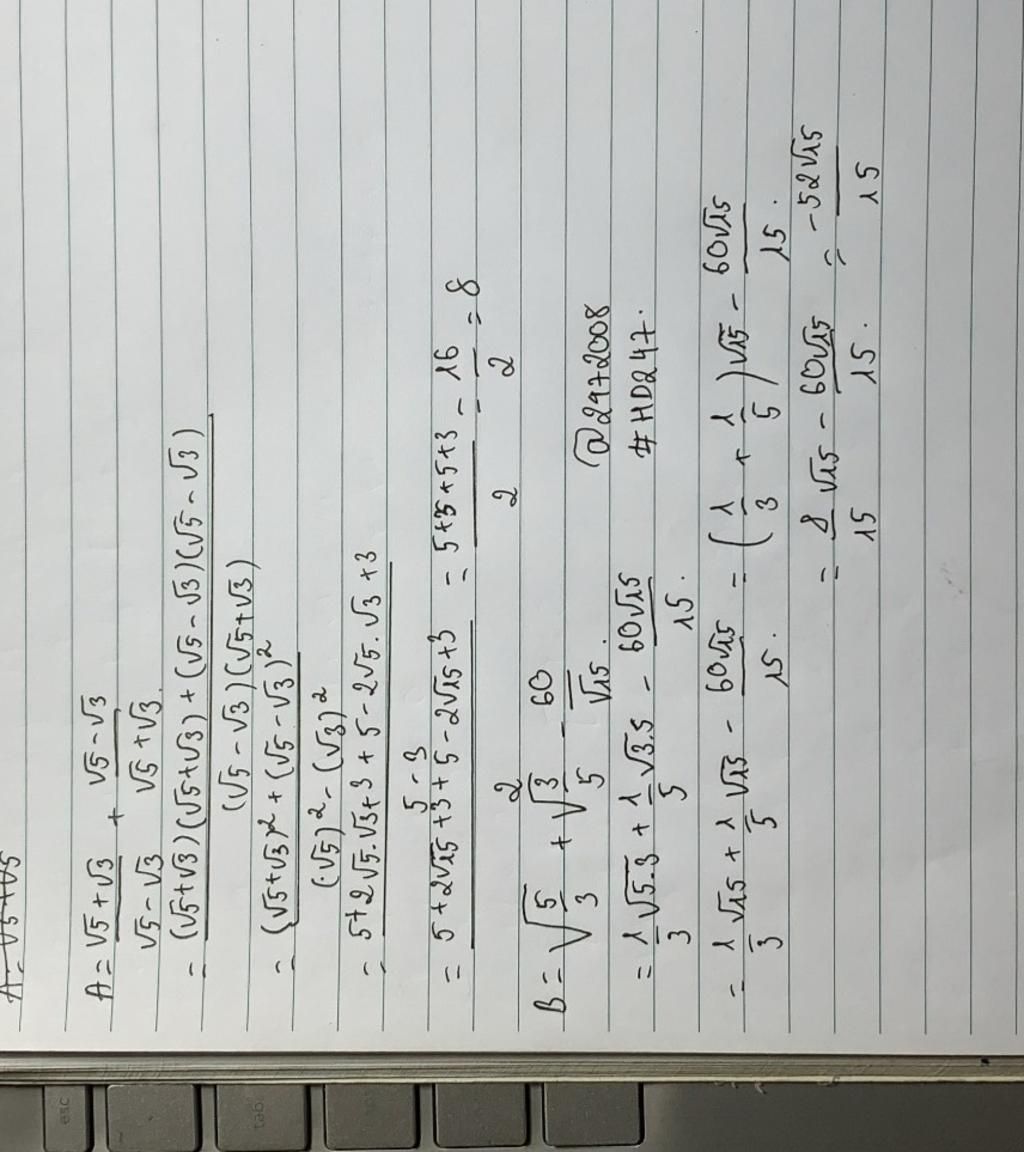 A = √5+√5
A = (√5+√3)/(√5-√3) + (√5-√3)/(√5+√3).
= ((√5+√3)(√5+√3)+(√5-√3)(√5-√3))/((√5-√3)(√5+√3))
= ((√5+√3)²+(√5-√3)²)/((√5)²-(√3)²)
= (5+2√5.√3+3+5-2√5.√3+3)/(5-3)
= (5+2√15+3+5-2√15+3)/2 = (5+3+5+3)/2 = 16/2 = 8
B = √(5/3) + √(3/5) - 60/√15.
@2472008
#HD247.
= 1/3 √5.3 + 1/5 √3.5 - 60√15/15.
= 1/3 √15 + 1/5 √15 - 60√15/15. = (1/3 + 1/5)√15 - 60√15/15.
= 8/15 √15 - 60√15/15. = -52√15/15
esc
~
tab